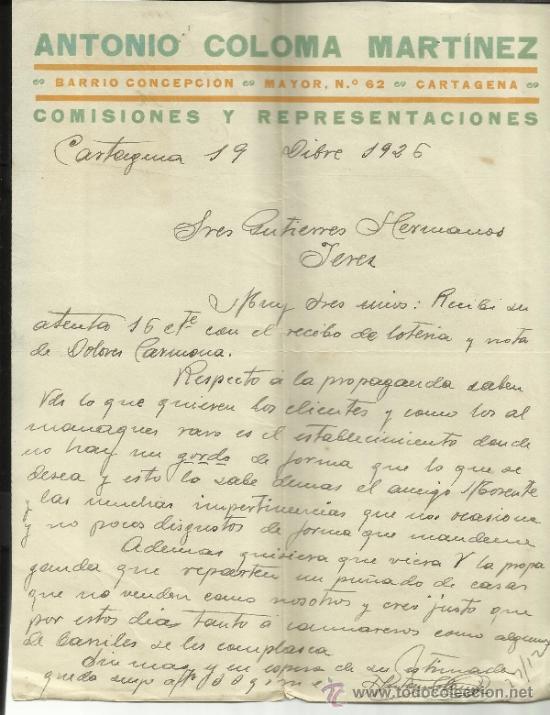 ANTONIO COLOMA MARTÍNEZ
BARRIO CONCEPCION MAYOR, N.º 62 CARTAGENA
COMISIONES Y REPRESENTACIONES
Cartagena 19 Dibre 1926
Sres Gutierres Hermanos
Jerez
Muy Sres mios: Recibi su
atenta 16 cte con el recibo de loteria y nota
de Dolores Carmona.
Respecto á la propaganda saben
Vds lo que quieren los clientes y como los al
manaques raro es el establecimiento donde
no hay un gordo de forma que lo que se
desea y esto lo sabe demas el amigo
y las muchas impertinencias que nos ocasiona
y no pocos disgustos de forma que mandeme
Ademas quisiera que viera V la propa
ganda que reparten un puñado de casas
que no venden como nosotros y creo justo que
por estos dias tanto a camareros como alguno
de barriles se les complazca
Sin mas y en espera de su estimada
quedo suyo
todocoleccion.net